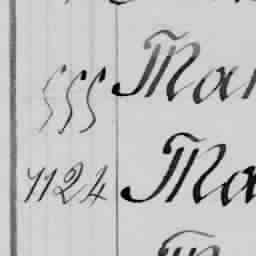 555 Mar
1124 Ma